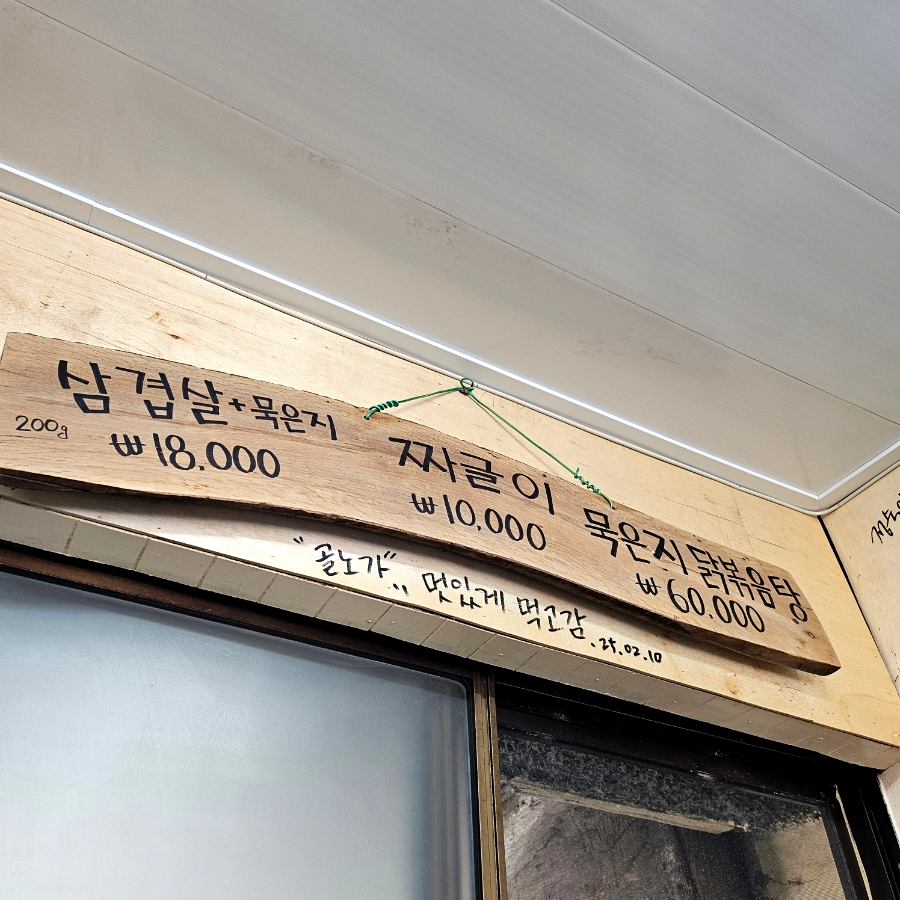 삼겹살+묵은지
200g ₩18.000
짜글이
₩10.000
묵은지 닭볶음탕
₩60.000
"골노가" 멋있게 먹고감
.25.02.10